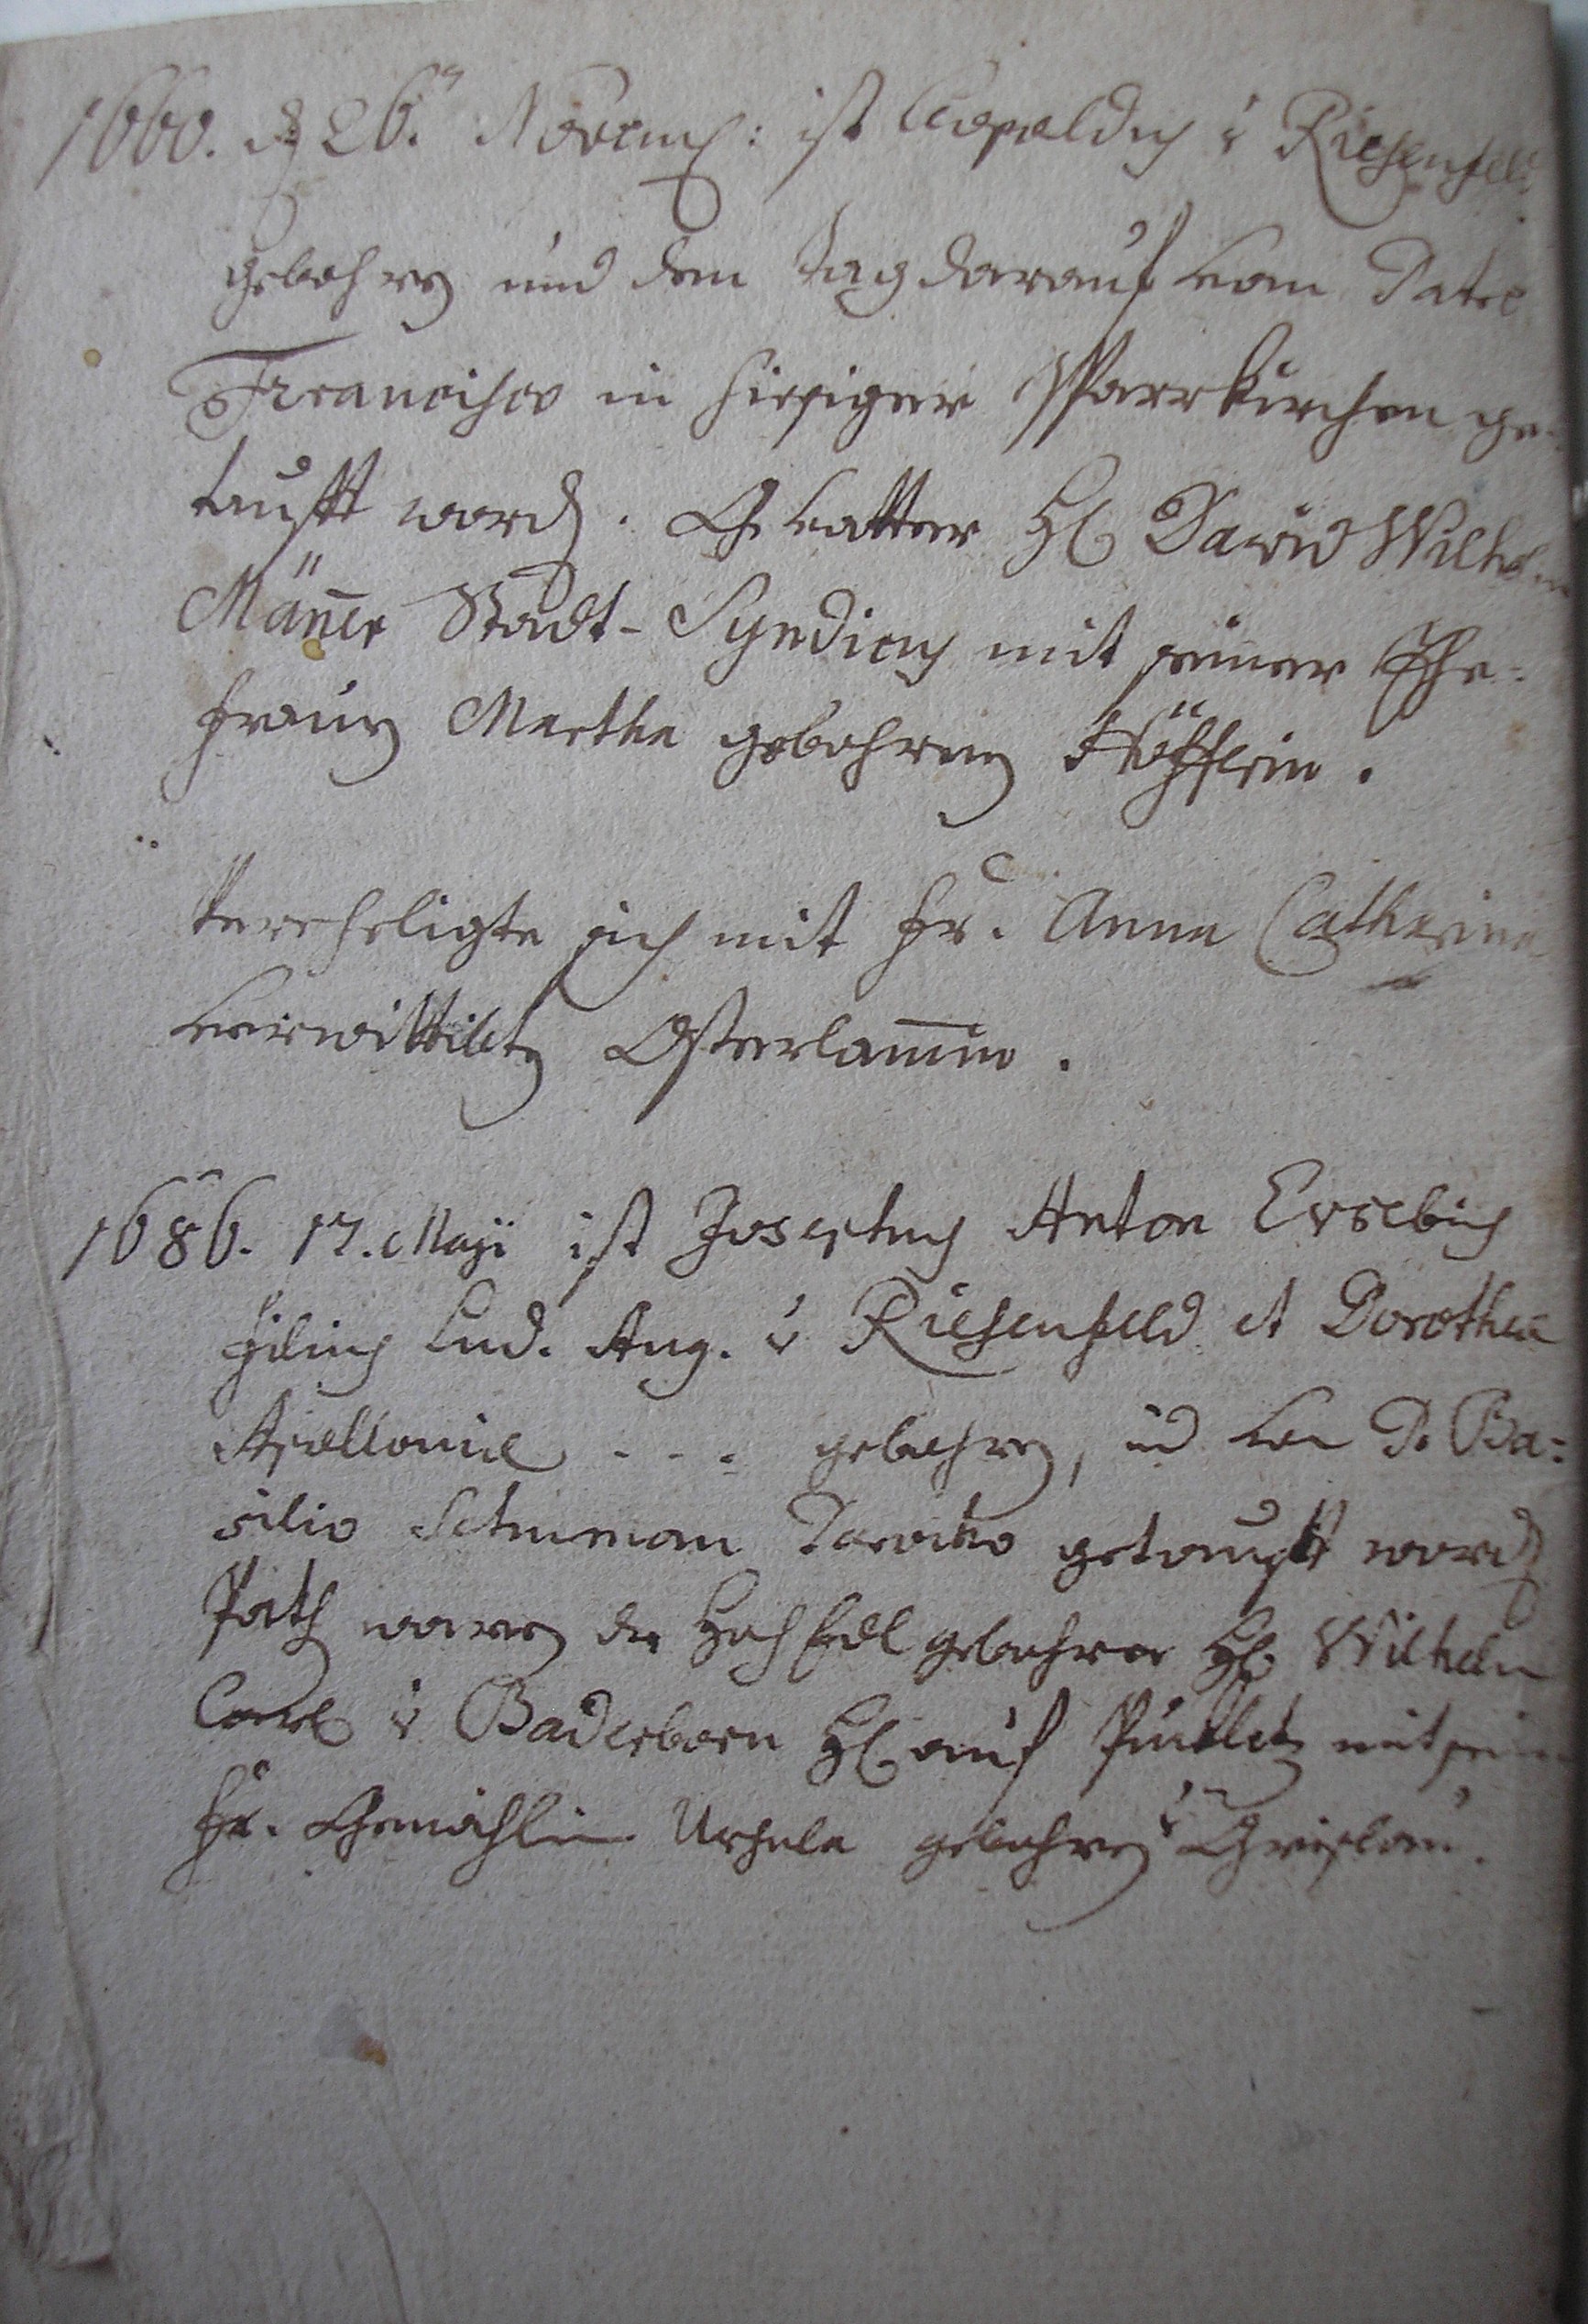 1660. d 26.ª Novemb: ist Leopaldus v Riesenfeld
gebohren und dem tag darauf von Pater
Francisco in hiesiger Pfarrkirchen ge-
taufft word. Gevatter H David Wilhelm
Männer Stadt-Syndicus mit seiner Ehe-
frauen Martha gebohrnen Höfflein.
Verehligte sich mit Fr. Anna Catharina
verwittibten Osterlammin.
1686. 17. Maji ist Josephus Anton Eusebius
Filius Lud. Aug. v Riesenfeld et Dorothea
Apollonia - - - gebohren, ud von P. Ba-
silio Schuman Parocho getaufft word
Path waren der HochEdl gebohrne H. Wilhelm
Carl v Baderborn H auf mit sein
Fr. Gemahlin Ursula gebohren v